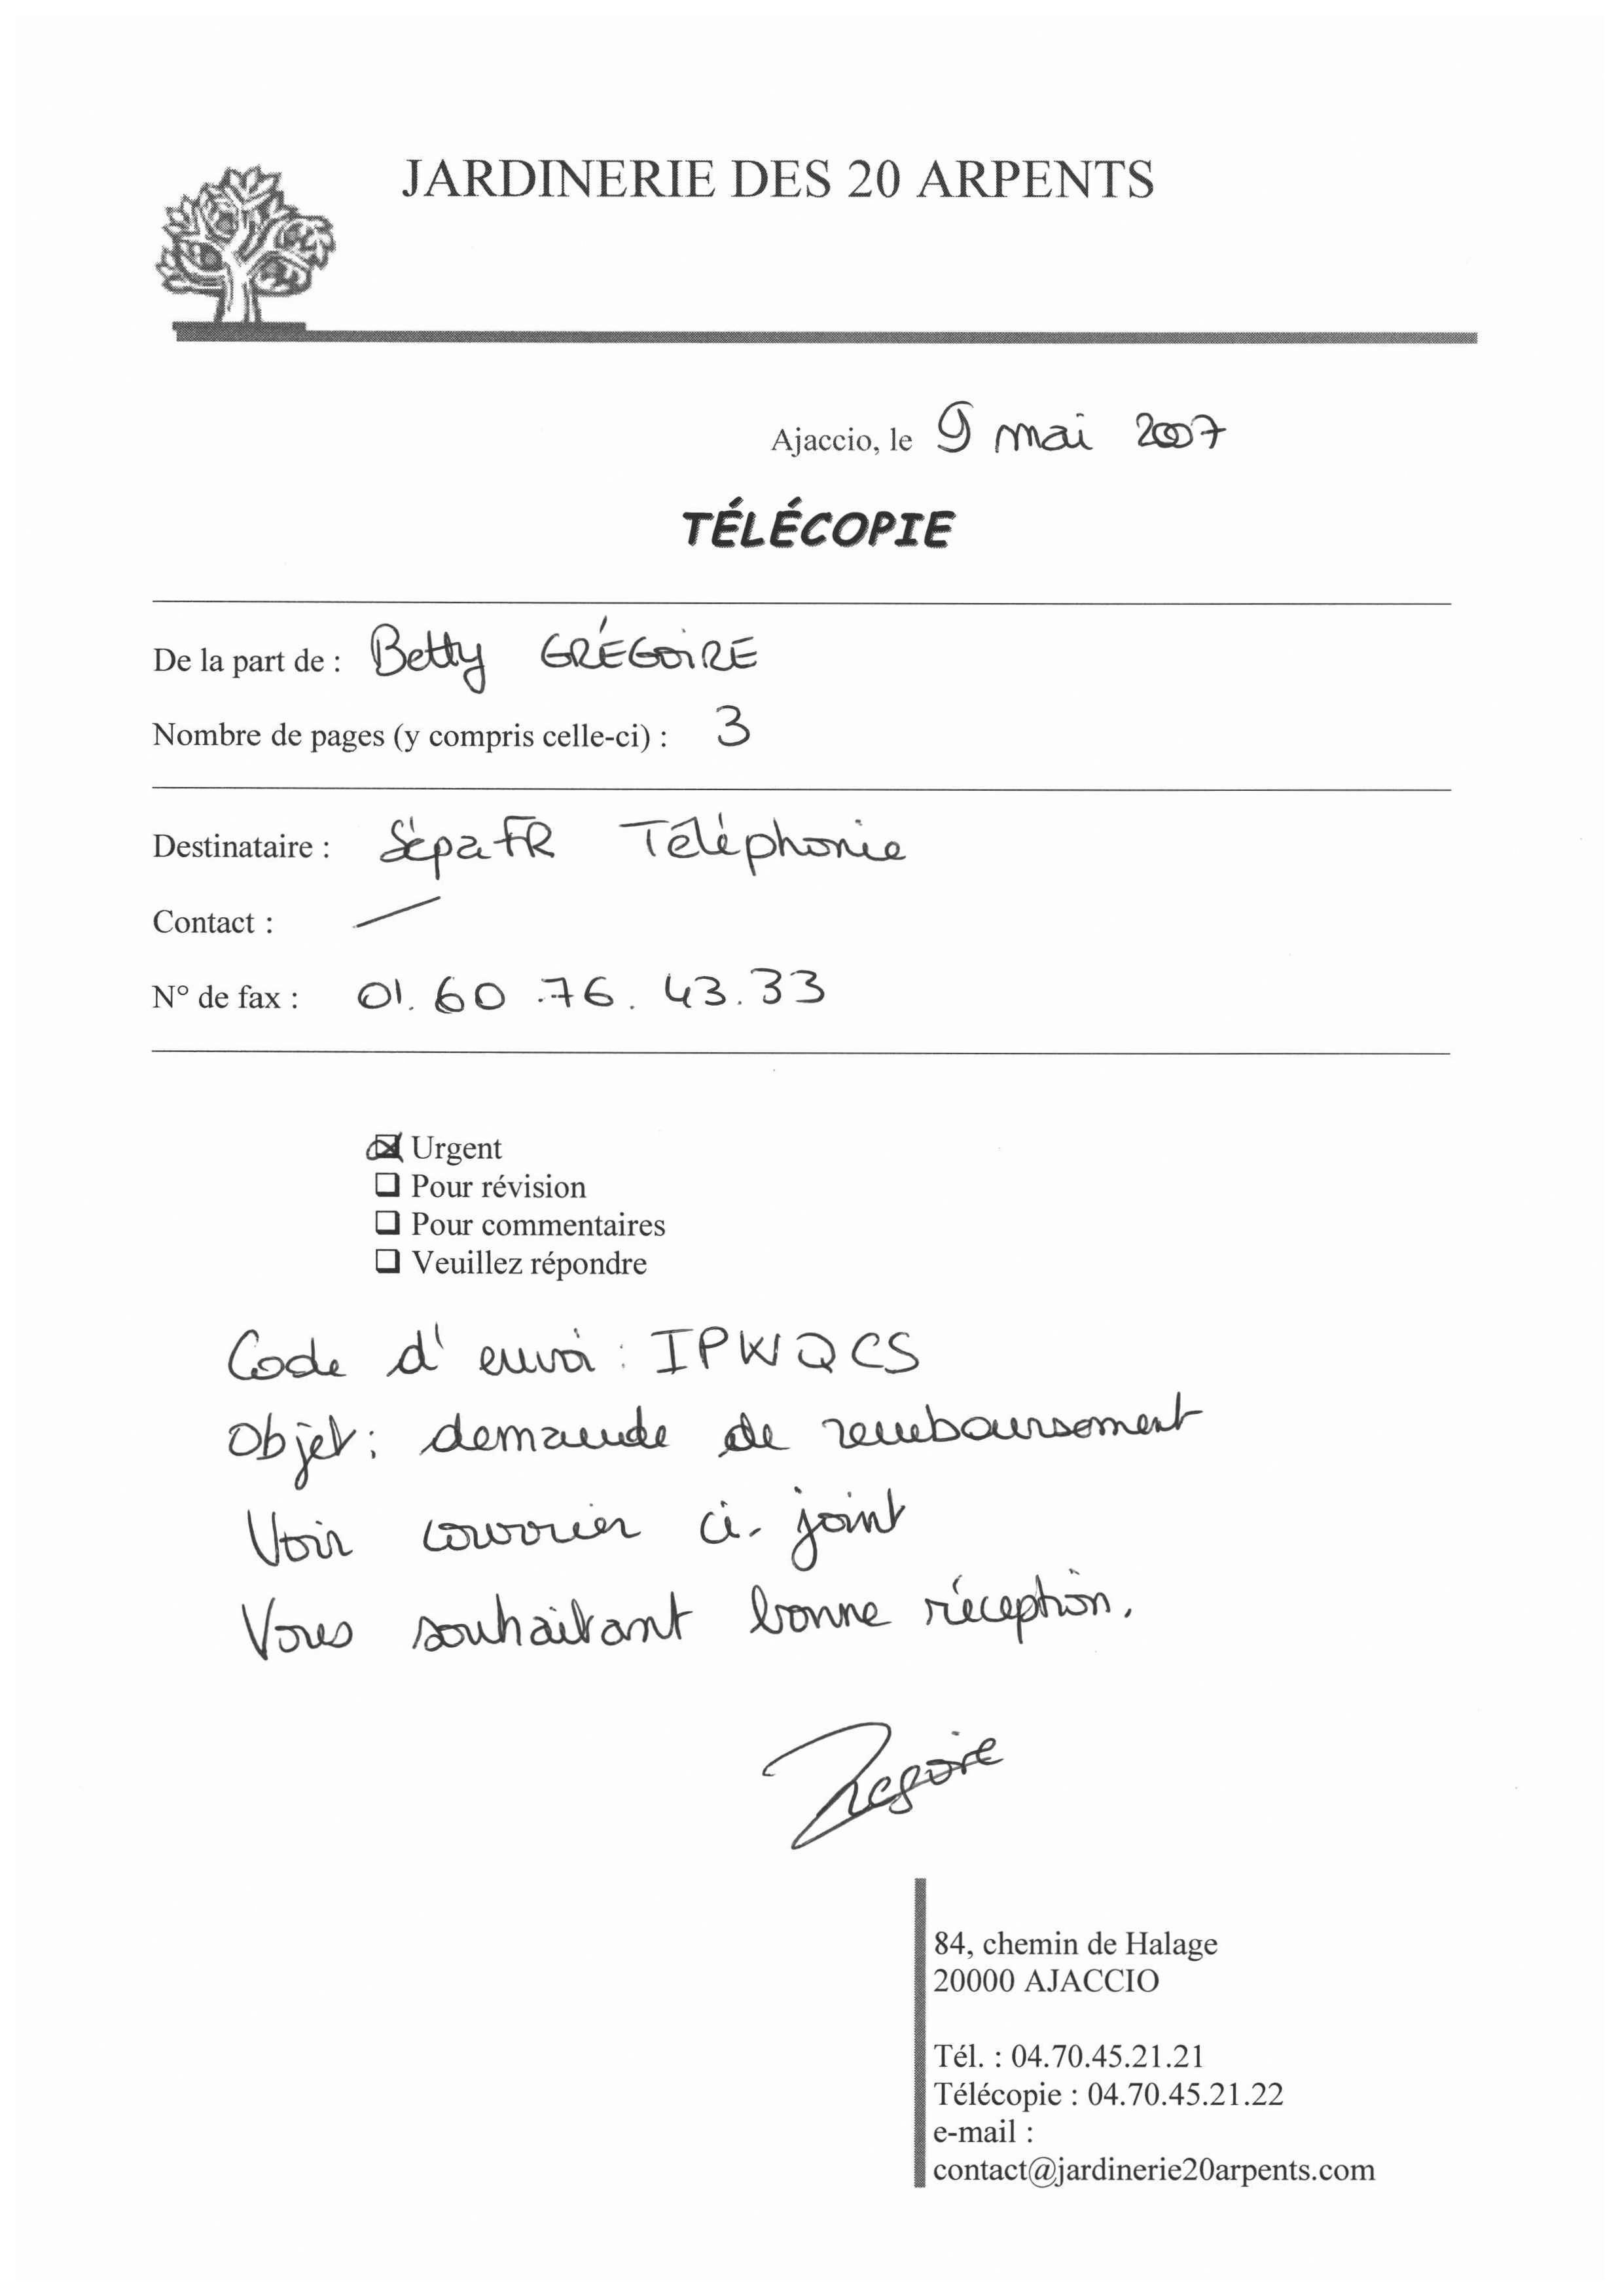 JARDINERIE DES 20 ARPENTS
Ajaccio, le 9 mai 2007
TÉLÉCOPIE
De la part de : Betty GRÉGOIRE
Nombre de pages (y compris celle-ci) : 3
Destinataire : SépaFR Téléphonie
Contact :
N° de fax : 01.60.76.43.33
Urgent
Pour révision
Pour commentaires
Veuillez répondre
Code d'envoi : IPWQCS
Objet : demande de remboursement
Voir courrier ci-joint
Vous souhaitant bonne réception.
Gregoire
84, chemin de Halage
20000 AJACCIO
Tél. : 04.70.45.21.21
Télécopie : 04.70.45.21.22
e-mail :
contact@jardinerie20arpents.com